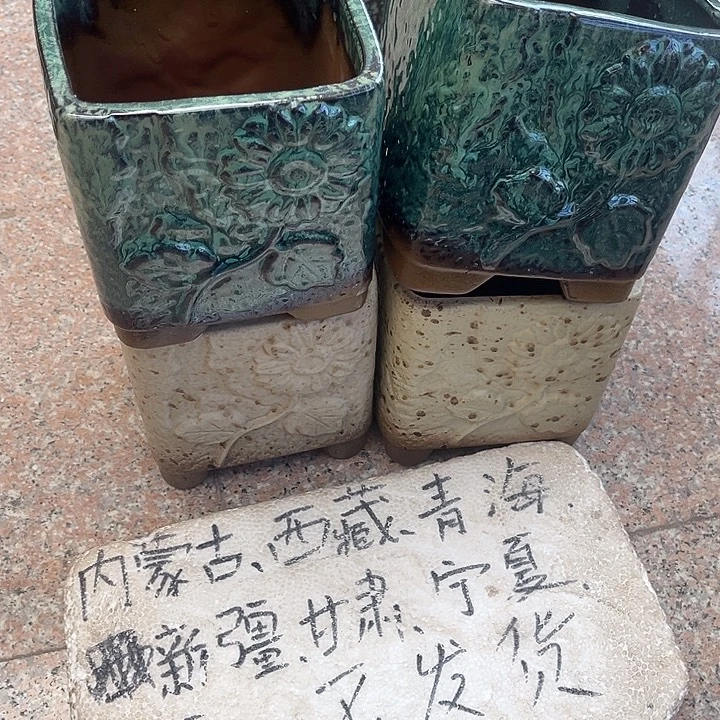 内蒙古、西藏、青海、
新疆、甘肃、宁夏、
不发货